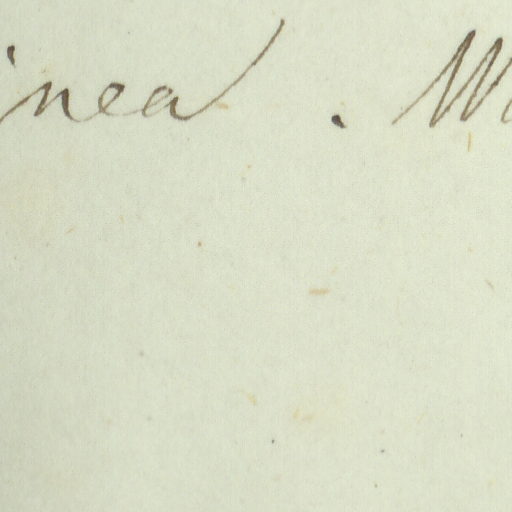 inea. M